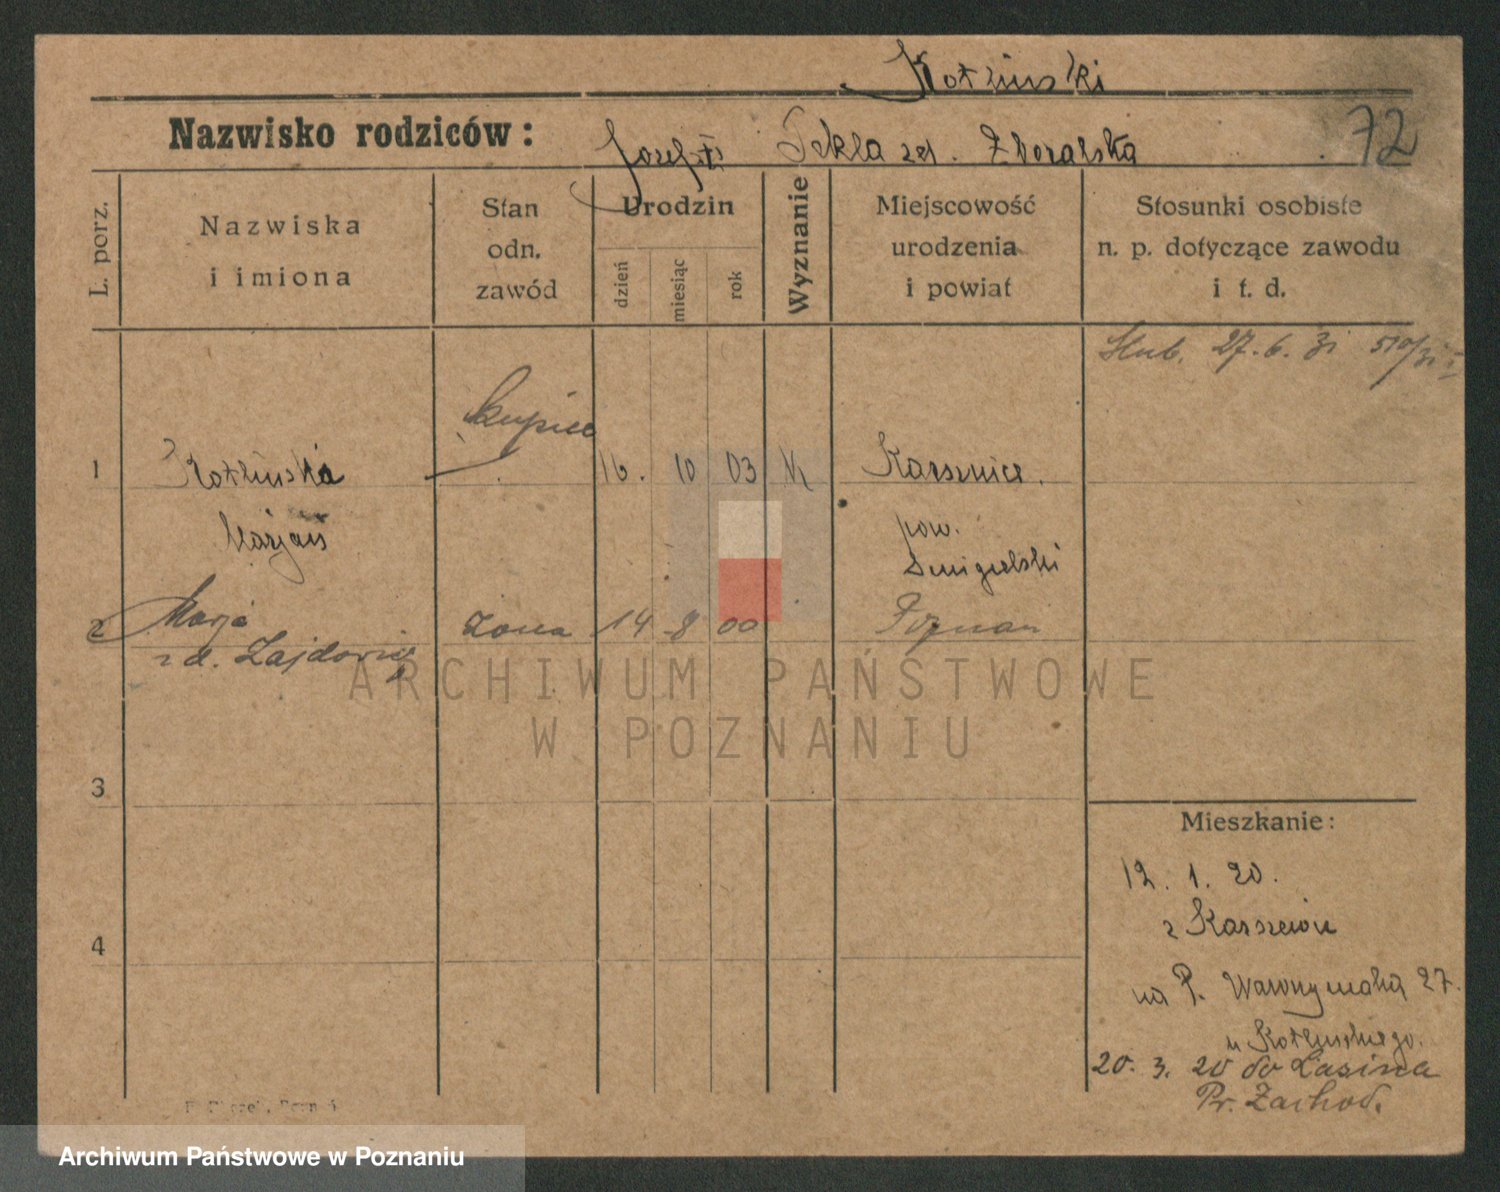 Kotliński
Nazwisko rodziców: Józef Tekla zd. Zboralska 72
L. porz.
Nazwiska
i imiona
Stan
odn.
zawód
Urodzin
dzień
miesiąc
rok
Wyznanie
Miejscowość
urodzenia
i powiat
Stosunki osobiste
n. p. dotyczące zawodu
i t. d.
27. 6. 31
kupiec
1 Kotliński 16. 10 03
Marjan
pow.
Śmigielski
2 Marja żona 14 8 00 Poznań
zd.
3
4
Mieszkanie:
12. 1. 20.
z
na P. 27.
u Kotlińskiego.
20. 3. 20 do
Pr. Zachod.
ARCHIWUM PAŃSTWOWE
W POZNANIU
Archiwum Państwowe w Poznaniu